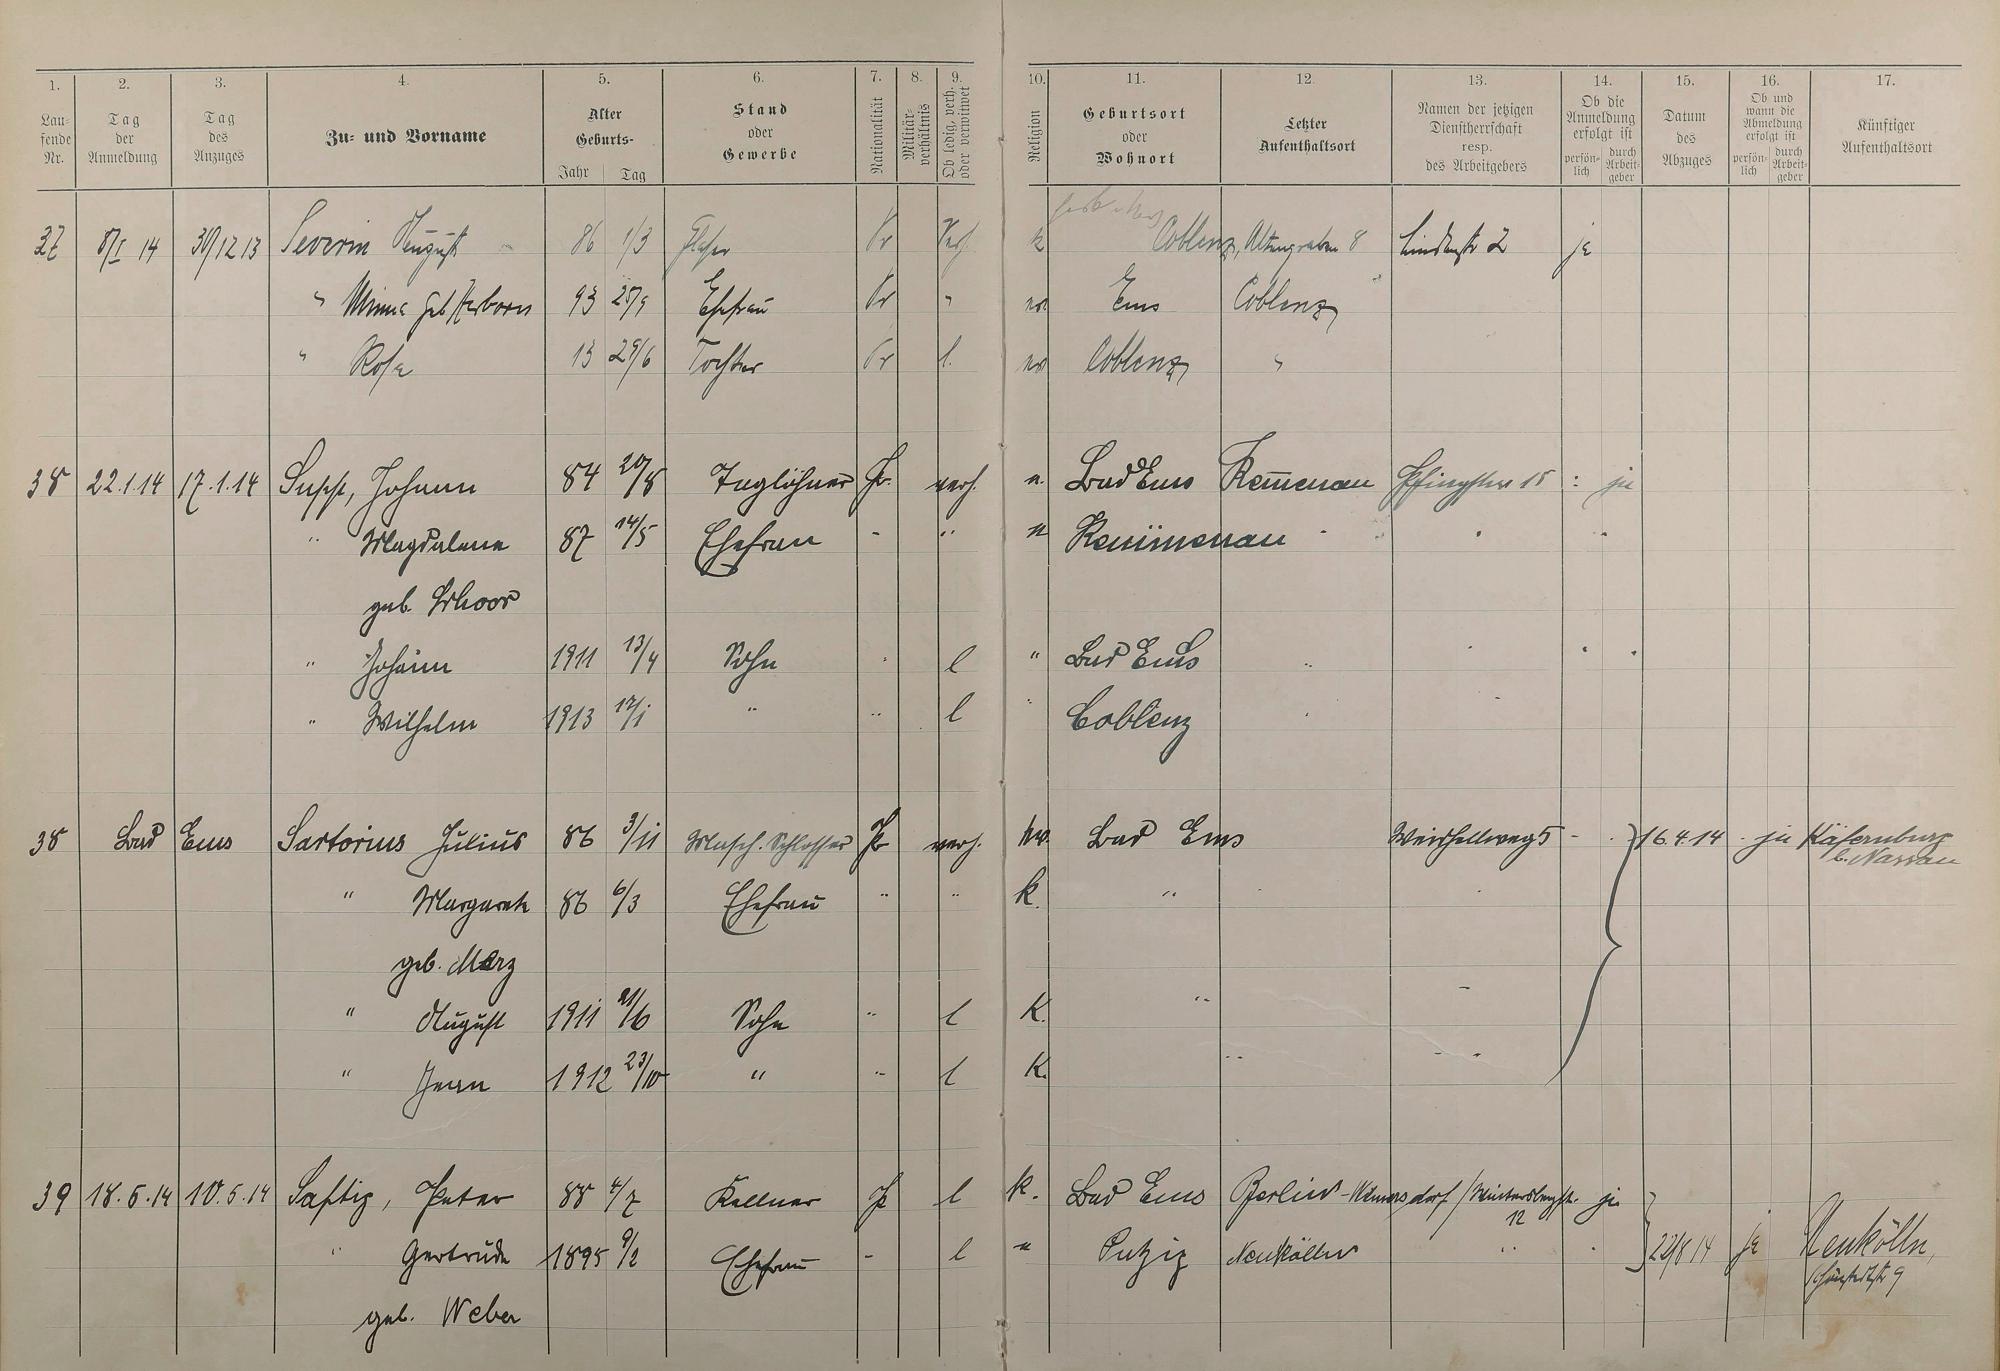 1. 2. 3. 4. 5. 6. 7. 8. 9. 10. 11. 12. 13. 14. 15. 16. 17.
Laufende Nr.
Tag der Anmeldung
Tag des Anzuges
Zu- und Vorname
Alter Geburts-
Jahr Tag
Stand oder Gewerbe
Nationalität
Militärverhältnis
Ob ledig, verh. oder verwitwet
Religion
Geburtsort oder Wohnort
Letzter Aufenthaltsort
Namen der jetzigen Dienstherrschaft resp. des Arbeitgebers
Ob die Anmeldung erfolgt ist
persönlich durch Arbeitgeber
Datum des Abzuges
Ob und wann die Abmeldung erfolgt ist
persönlich durch Arbeitgeber
Künftiger Aufenthaltsort
37 8/I 14 30/12 13 Severin August 86 1/3 Pr Verh. k Coblenz, Altengraben 8 Lindenstr 2 ja
" Minna geb Herborn 93 Ehefrau Pr " Ems Coblenz
" Rosa 13 29/6 Tochter Pr l. Coblenz "
38 22.1.14 17.1.14 Johann 84 20/8 Taglöhner Pr. verh. Bad Ems Kemmenau 15 ja
" Magdalena 87 14/5 Ehefrau - " Kemmenau
geb.
" Johann 1911 13/4 Sohn l " Bad Ems
" Wilhelm 1913 12/1 " " l Coblenz
38 Bad Ems Sartorius Julius 86 3/11 Masch. Schlosser Pr verh. Bad Ems Weidhellweg 5 - 16.4.14 ja Käfernburg b. Nassau
" Margarete 86 6/3 Ehefrau " " k. "
geb. Marz
" August 1911 21/6 Sohn " l K. "
" Jean 1912 23/10 " " l K. "
39 18.5.14 10.5.14 Saftig, Peter 88 4/7 Kellner Pr l k. Bad Ems Berlin-Wilmersdorf Wintersbergstr. 12 ja
" Gertrude 1895 9/2 Ehefrau - l " Putzig Neukölln " 22/8 14 ja Neukölln,
geb. Weber